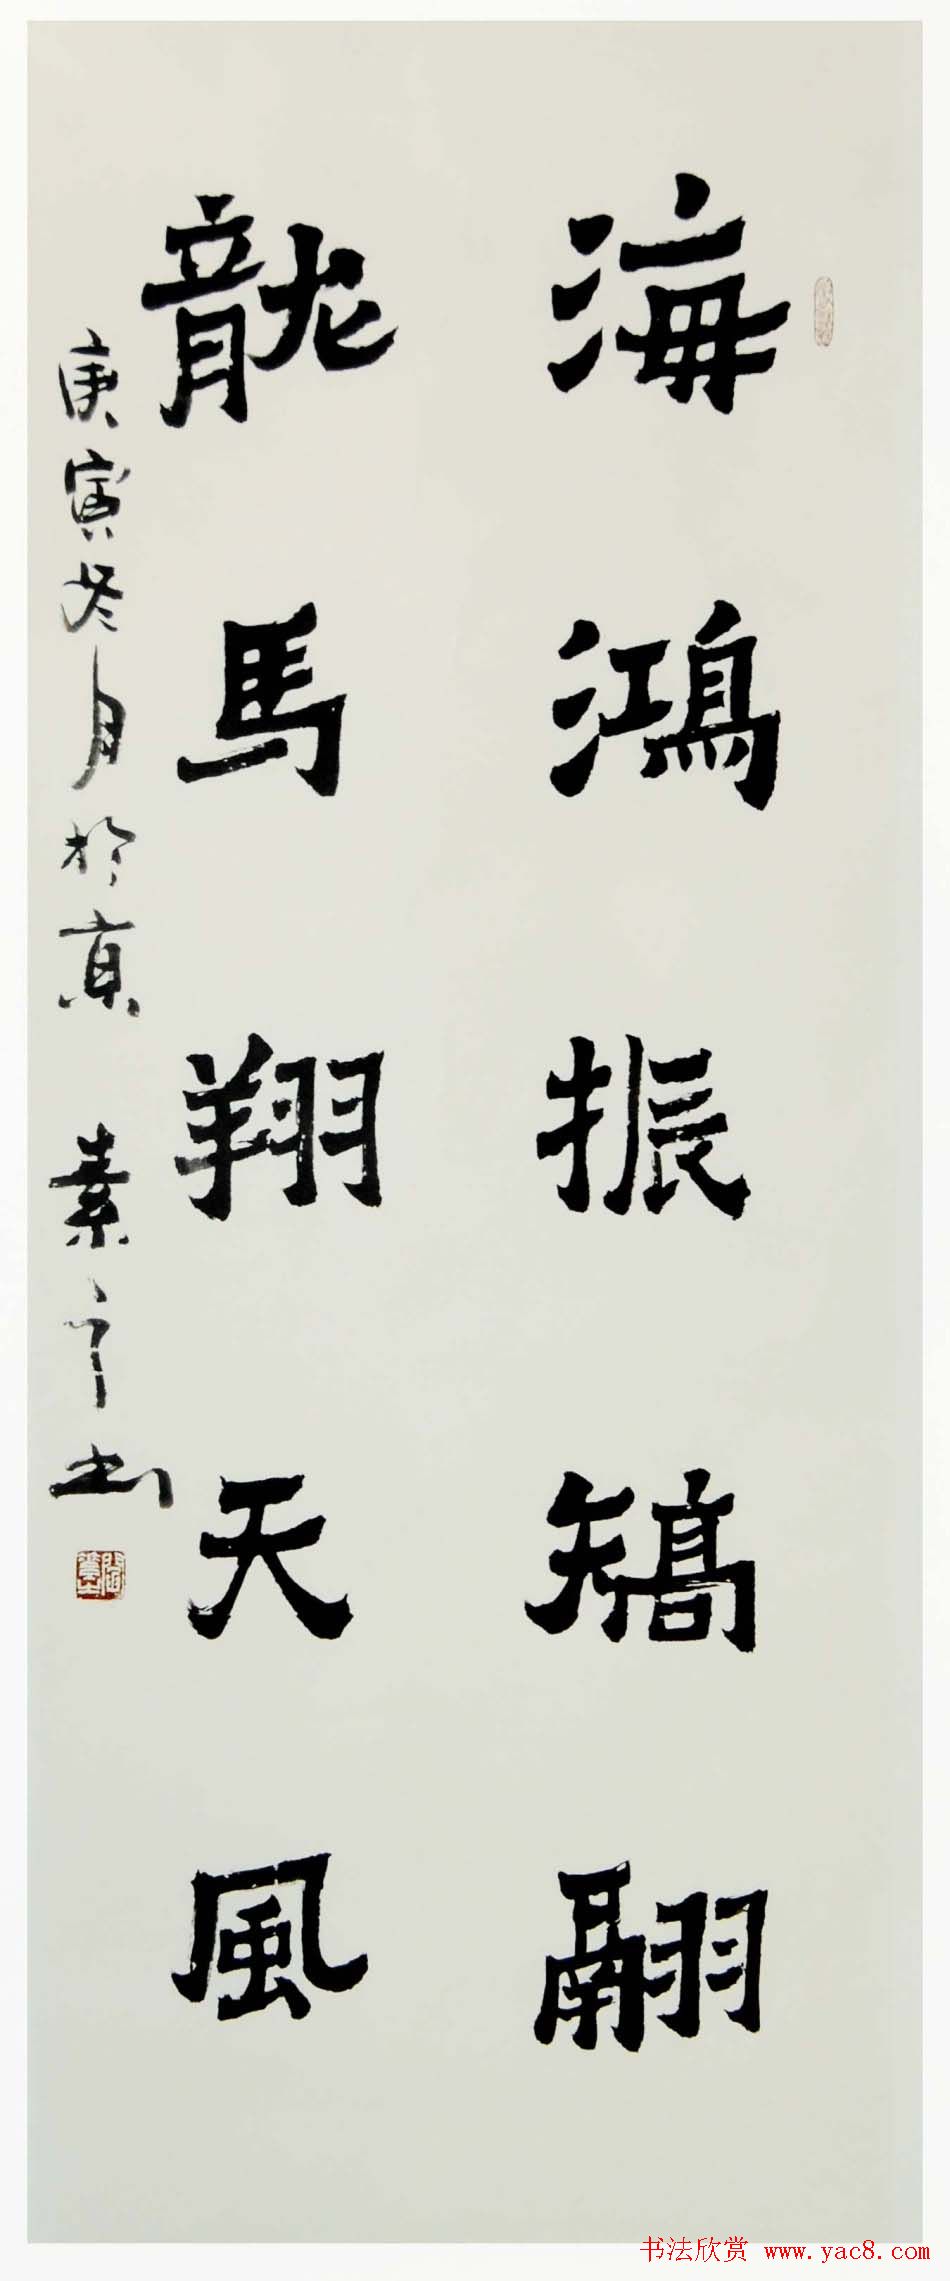 海鴻振矯翮
龍馬翔天風
庚寅冬月於京 素之书
书法欣赏 www.yac8.com